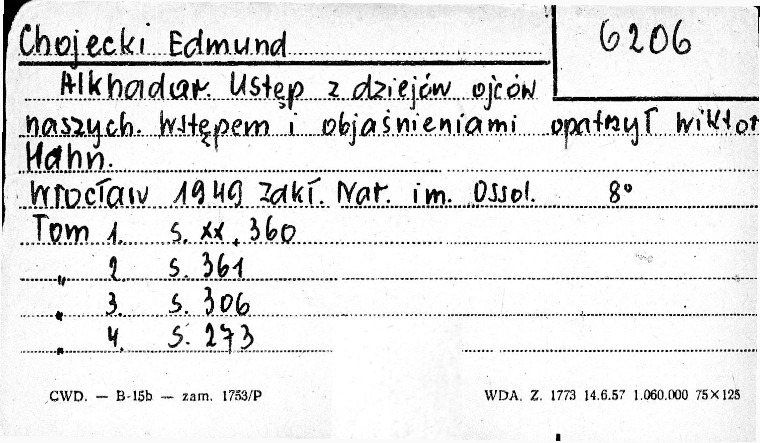 Chojecki Edmund 6206
Alkhadar. Ustęp z dziejów ojców
naszych. Wstępem i objaśnieniami opatrzył Wiktor
Hahn.
Wrocław 1949 Zakł. Nar. im. Ossol. 8°
Tom 1. s. xx, 360
" 2. s. 361
" 3. s. 306
" 4. s. 273
CWD. — B-15b — zam. 1753/P WDA. Z. 1773 14.6.57 1.060.000 75×125